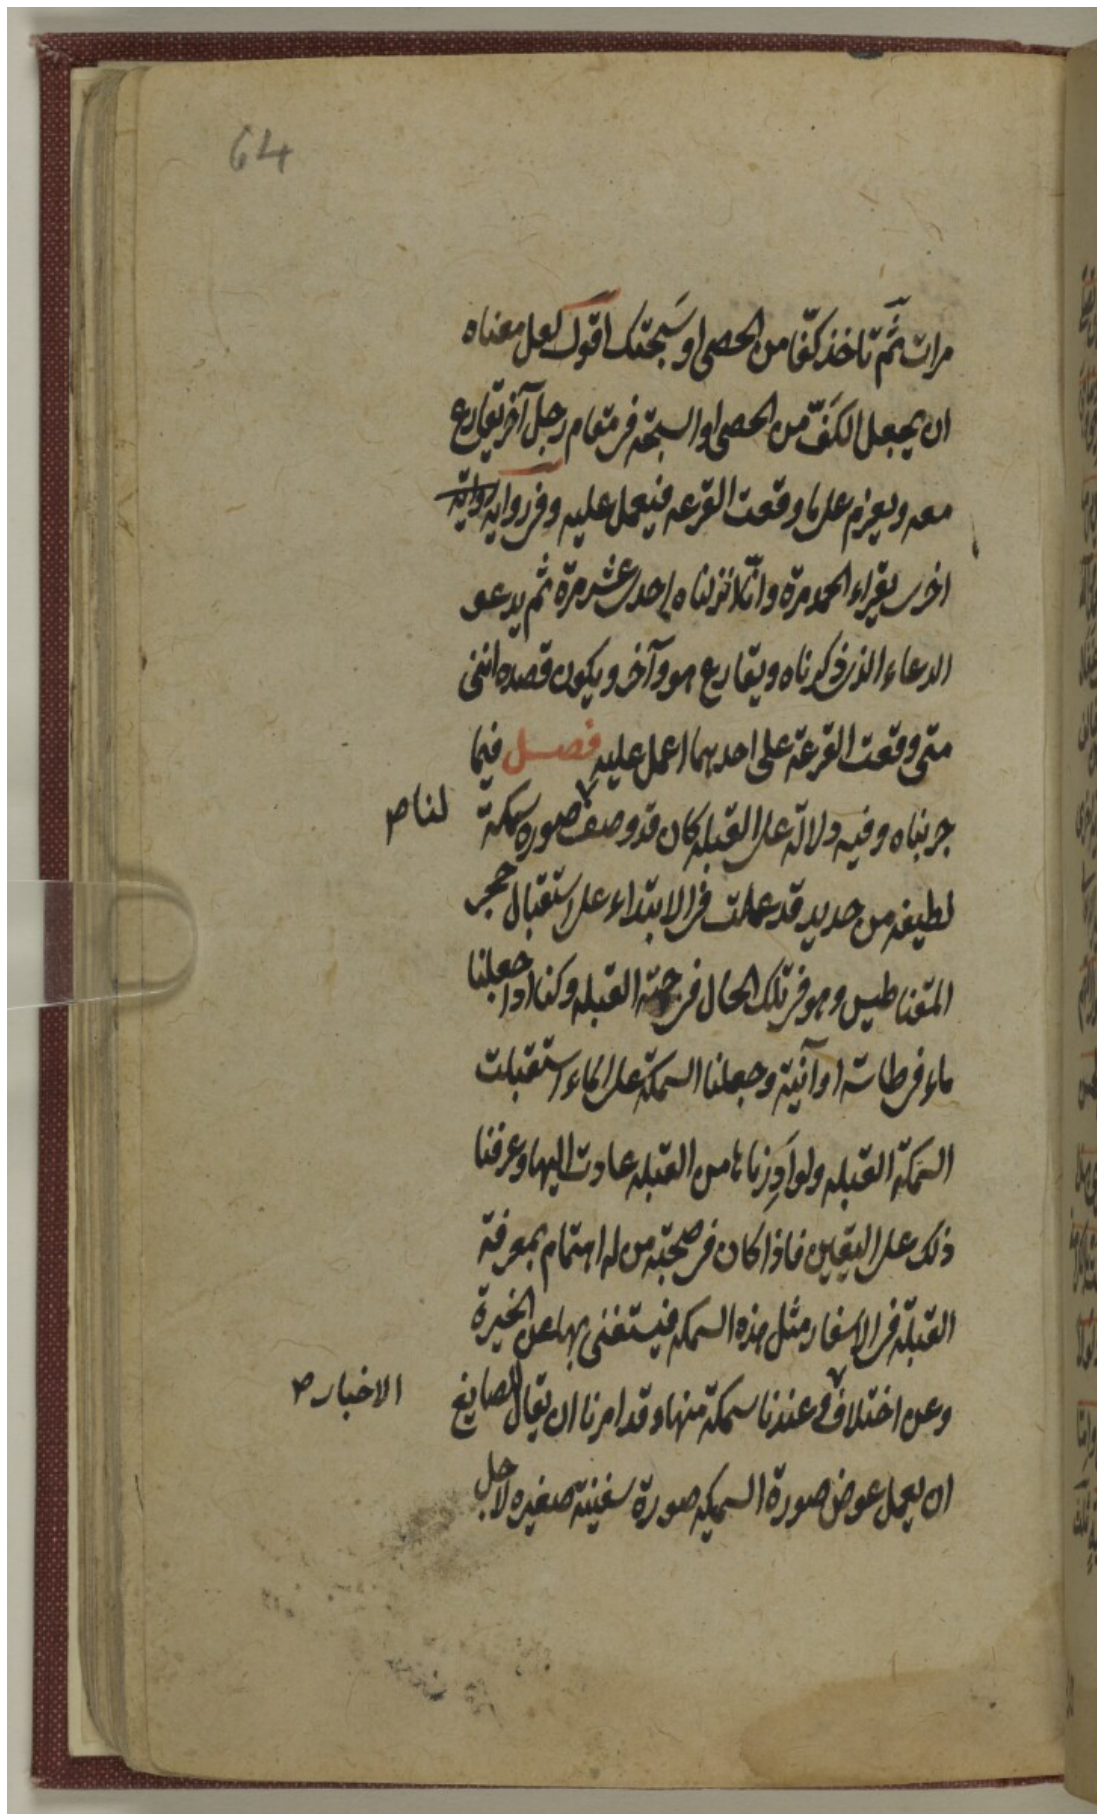 64
مرات ثم تاخذ كفّا من الحصى او سَبحتك اقول لعل معناه
ان يجعل الكفّ من الحصى او السبحة فى مقام رجل آخر يقارع
معه و يعزم على ما وقعت القرعه فيعمل عليه وفى رواية رواية
اخرى يقراء الحمد مرة وانّا انزلناه احدى عشر مرة ثم يدعو
الدعاء الذى ذكرناه ويقارع هو وآخر ويكون قصده اننى
متى وقعت القرعة على احدهما اعمل عليه فصل فيما
جربناه وفيه دلالة على القبله كان قد وصف صوره سمكة
لنا ص
لطيفه من حديد قد عملت فى الابتداء على استقبال حجر
المقناطيس وهو فى تلك الحال فى جهة القبله وكنا اذا جعلنا
ماء فى طاسة او آنية وجعلنا السمكة على الماء استقبلت
السمكة القبله ولو ادرناها من القبله عادت اليها وعرفنا
ذلك على اليقين فاذا كان فى صحبته من له اهتمام بمعرفة
القبلة فى الاسفار مثل هذه السمكه فيستغنى بها عن الحيرة
وعن اختلاف وعندنا سمكة منها وقد امرنا ان يقال لصايغ
الاخبار ص
ان يعمل عوض صورة السمكه صورة سفينة صغيره لاجل